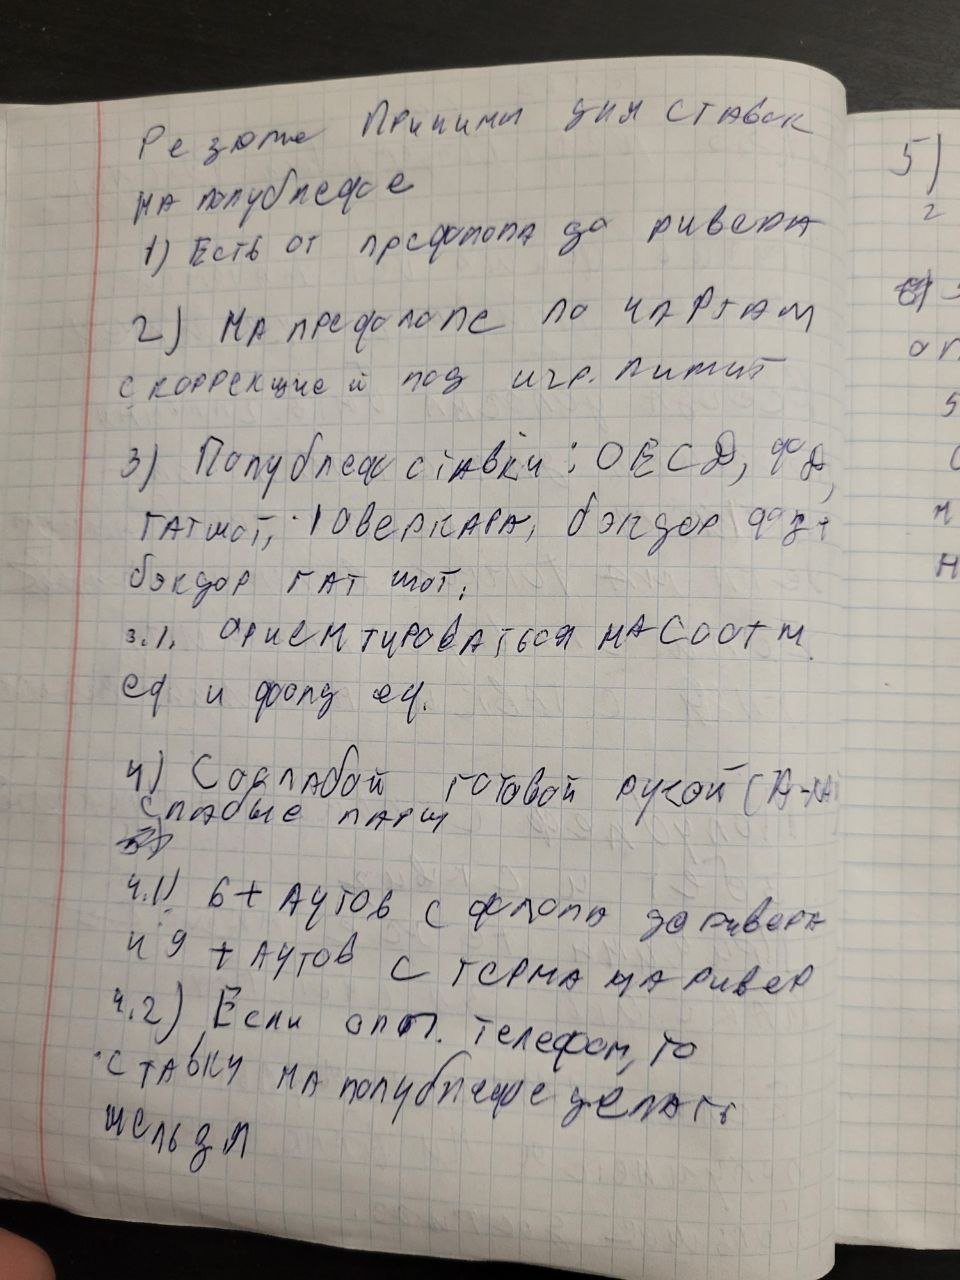 Резюме Причины для ставок
на полублефе
1) Есть от префлопа до ривера
2) На префлопе по чартам
с коррекцией под игр. лимит
3) Полублеф ставки: ОЕСД, фд,
гатшот, 1 оверкара, бэкдор фд+
бэкдор гат шот.
3.1. Ориентироваться на соотн.
eq и фолд eq.
4) Со слабой готовой рукой
слабые пары
4.1) 6+ аутов с флопа до ривера
и 9+ аутов с терна на ривер
4.2) Если опп. телефон, то
ставку на полублефе делать
нельзя
5)